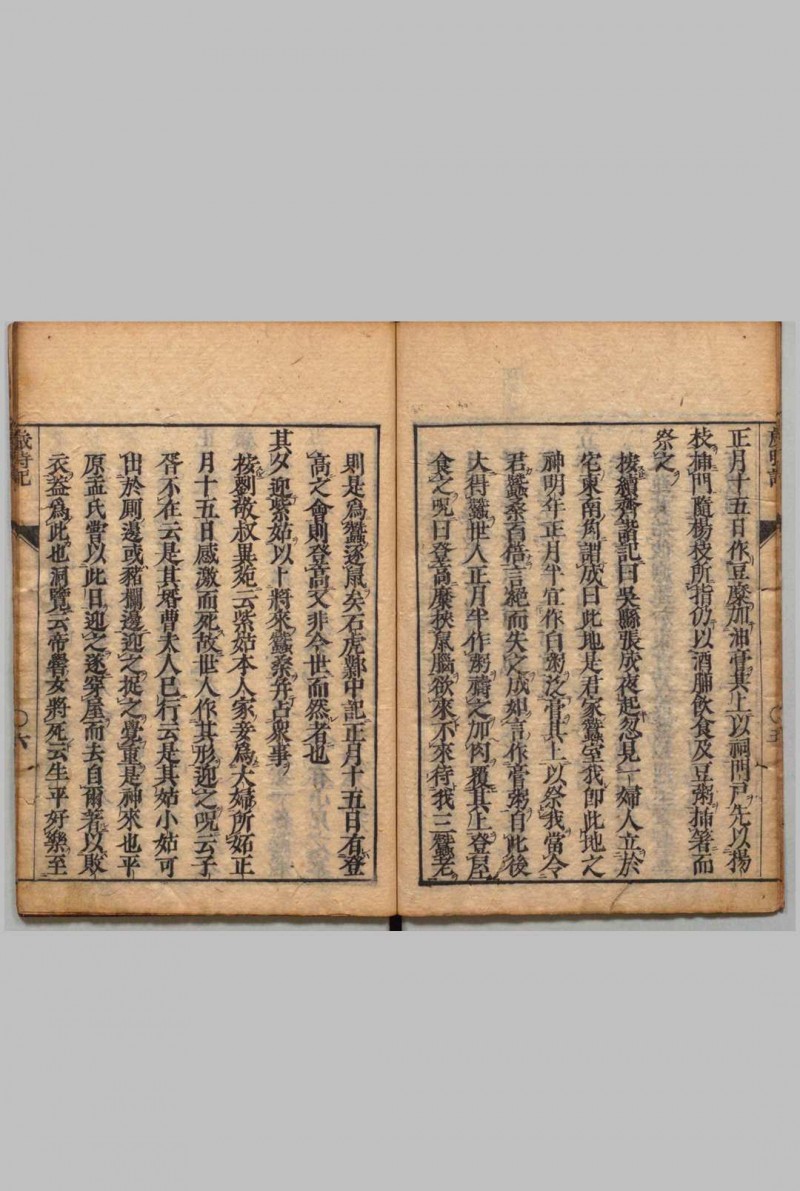 正月十五日作豆糜加油膏其上以祠門戶先以楊
枝揷門隨楊枝所指仍以酒脯飲食及豆粥揷箸而
祭之
按續齊諧記曰吳縣張成夜起忽見一婦人立於
宅東南角謂成曰此地是君家蠶室我卽此地之
神明年正月半宜作白粥泛膏其上以祭我當令
君蠶桑百倍言絕而失之成如言作膏粥自此後
大得蠶世人正月半作粥禱之加肉覆其上登屋
食之呪曰登高糜挾鼠腦欲來不來待我三蠶老
則是爲蠶逐鼠矣石虎鄴中記正月十五日有登
高之會則登高又非今世而然者也
其夕迎紫姑以卜將來蠶桑幷占衆事
按劉敬叔異苑云紫姑本人家妾爲大婦所妬正
月十五日感激而死故世人作其形迎之呪云子
胥不在云是其壻曹夫人已行云是其姑小姑可
出於厠邊或豬欄邊迎之捉之覺重是神來也平
原孟氏嘗以此日迎之遂穿屋而去自爾著以敗
衣葢爲此也洞覽云帝嚳女將死云生平好樂至
歲時記
六